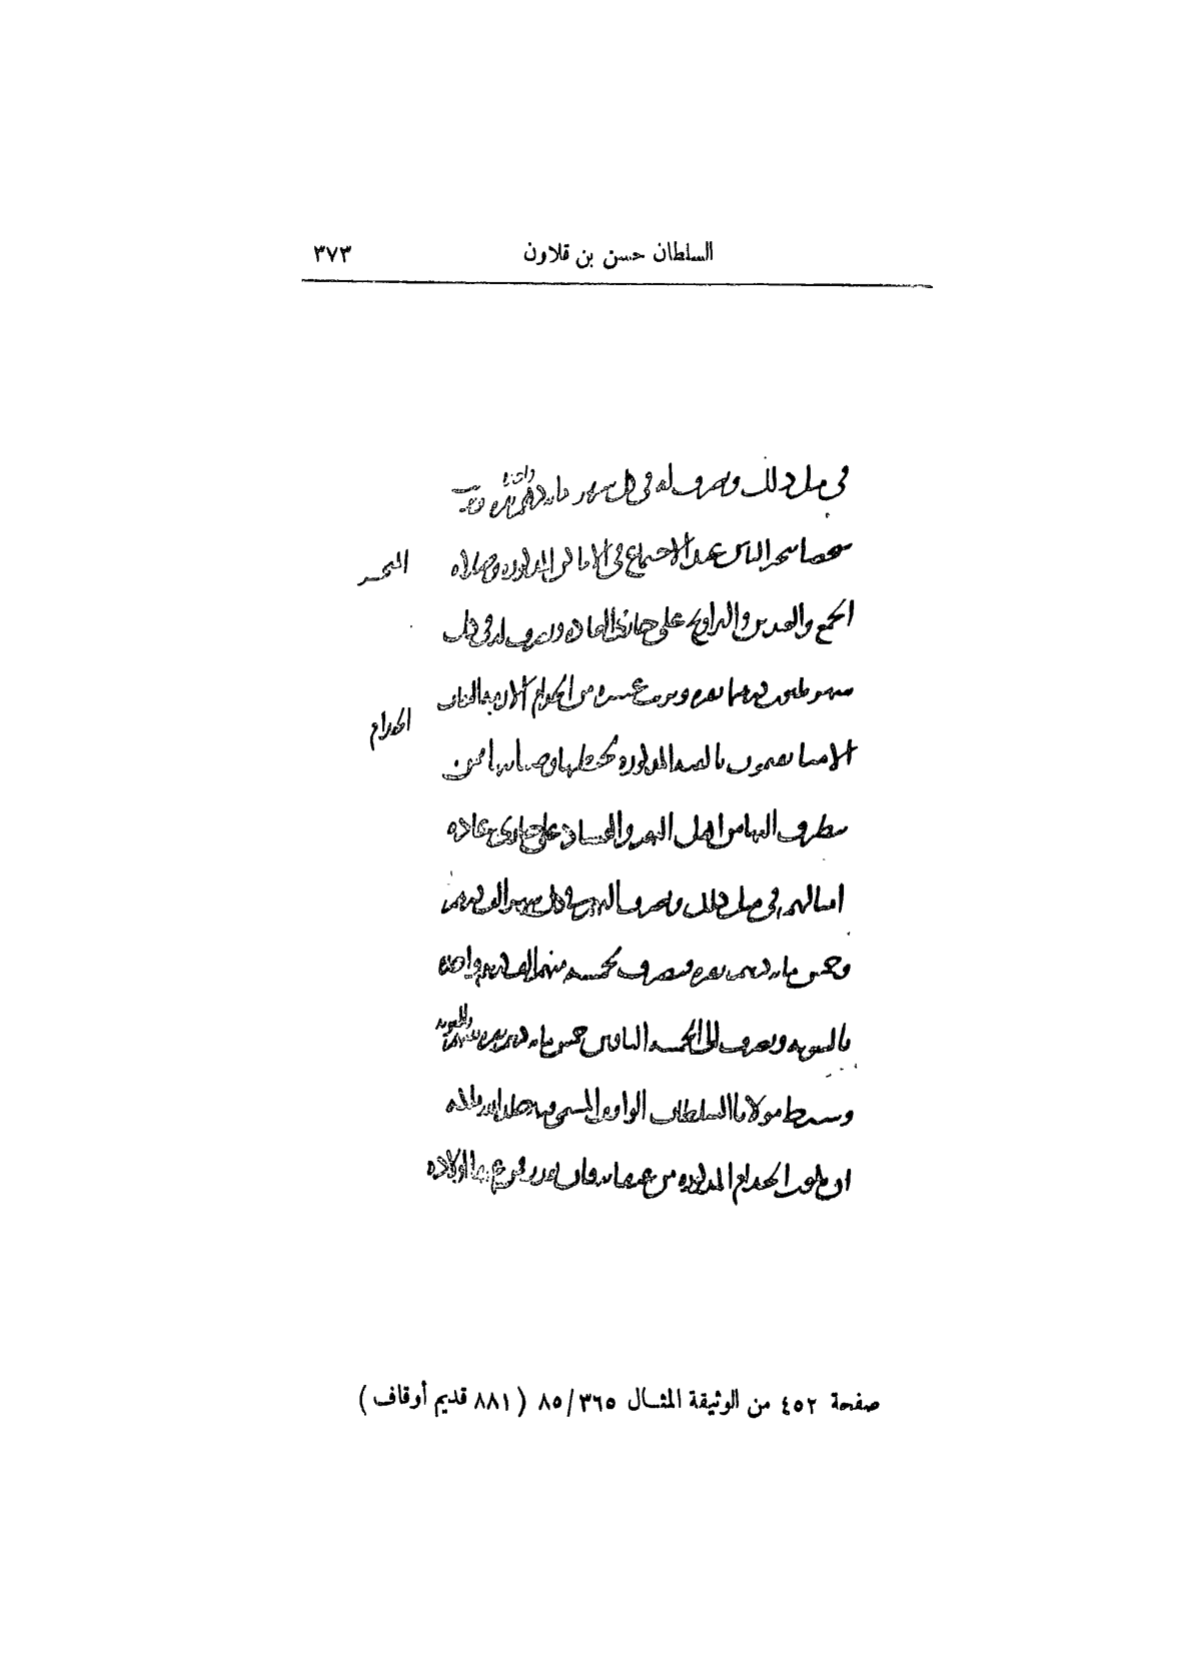 السلطان حسن بن قلاون ٣٧٣
في مثل ذلك ويصرف له في كل شهر مايه درهم نقره
الناس عند الاجتماع في الاماكن المذكورة وصلاه
الجمع والعيدين والتراويح على جاري العاده ويصرف له في كل
شهر درهما نقره ويرتب عشره من الخدام
الخدام
الامنا يقيمون بالقبه المذكوره لحفظها وصيانتها ممن
يتطرق اليها من اهل التهم والفساد على جاري عاده
امثالهم في مثل ذلك ويصرف اليهم في كل شهر الف درهم
وخمس مايه درهم نقره يصرف لخمسه منهم الف درهم واحده
بالسويه ويصرف الى الخمسه الباقين خمس مايه درهم نقره بالسويه
وشرط مولانا السلطان الواقف المسمى فيه خلد الله ملكه
ان يكون الخدام المذكوره من عتقايه فان تعذر فمن عتقا اولاده
صفحة ٤٥٢ من الوثيقة المثال ٨٥/٣٦٥ ( ٨٨١ قديم أوقاف )